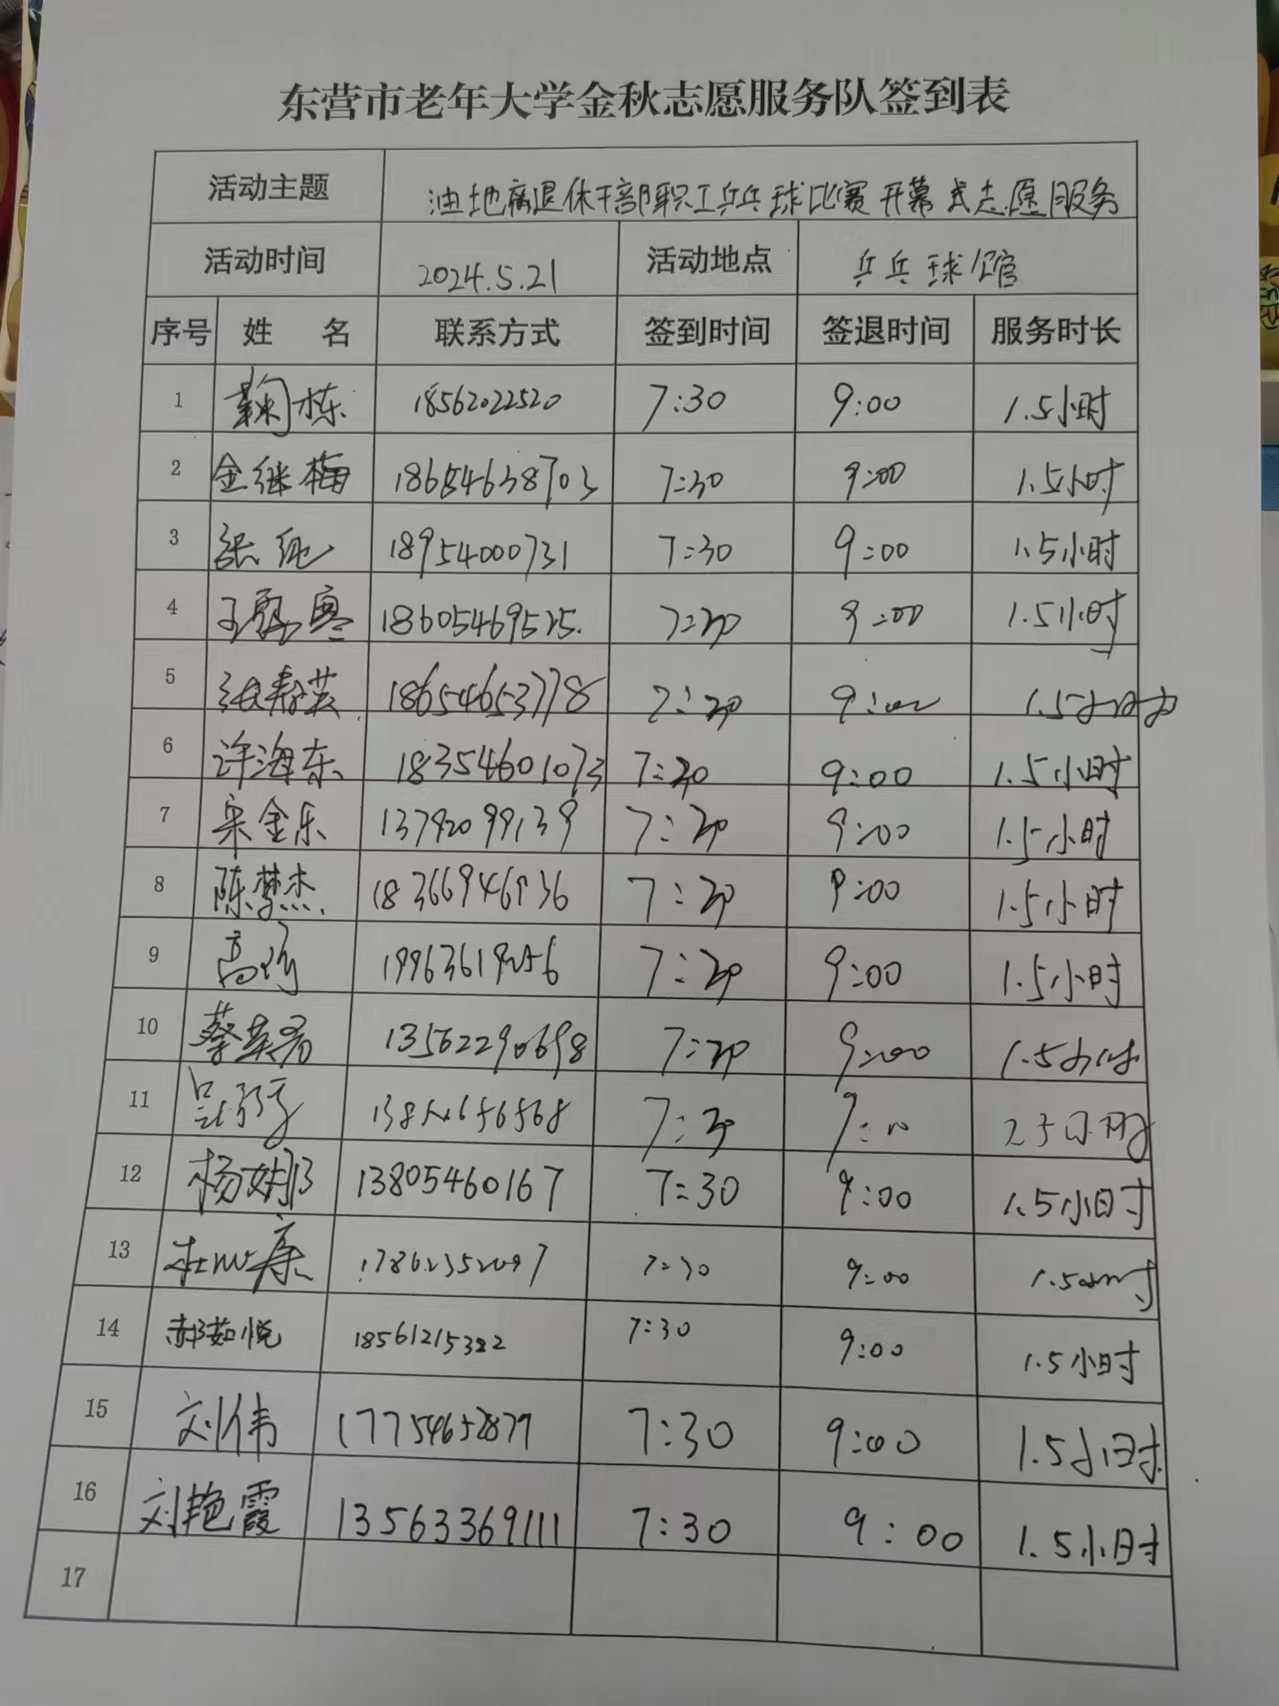 东营市老年大学金秋志愿服务队签到表
活动主题 油地离退休干部职工乒乓球比赛开幕式志愿服务
活动时间 2024.5.21 活动地点 乒乓球馆
序号 姓 名 联系方式 签到时间 签退时间 服务时长
1 鞠栋 18562022520 7:30 9:00 1.5小时
2 金继梅 18654638703 7:30 9:00 1.5小时
3 张 18954000731 7:30 9:00 1.5小时
4 王 18605469525. 7:30 9:00 1.5小时
5 张寿芸 18654653778 7:30 9:00 1.5小时
6 许海东 18354601073 7:30 9:00 1.5小时
7 宋金乐 13792099139 7:30 9:00 1.5小时
8 陈梦杰 18366946936 7:30 9:00 1.5小时
9 高 19963619256 7:30 9:00 1.5小时
10 蔡英君 13562290698 7:30 9:00 1.5小时
11 7:30
12 杨 13805460167 7:30 9:00 1.5小时
13 杜 康 7:30 9:00 1.5小时
14 郝茹悦 18561215322 7:30 9:00 1.5小时
15 刘伟 17754652879 7:30 9:00 1.5小时
16 刘艳霞 13563369111 7:30 9:00 1.5小时
17